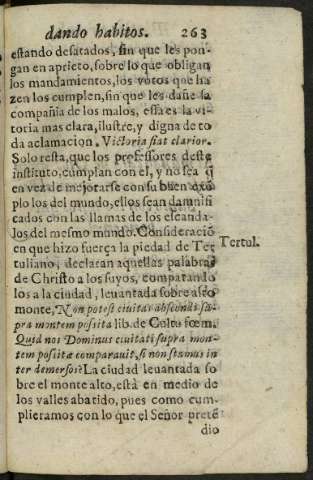 dando habitos. 263
estando desatados, sin que les pon-
gan en aprieto, sobre lo que obligan
los mandamientos, los votos que ha
zen los cumplen, sin que les dañe la
compañia de los malos, essa es la vi-
toria mas clara, ilustre, y digna de to
da aclamacion. Victoria fiat clarior.
Solo resta, que los professores deste
instituto, cumplan con el, y no sea q̃
en vez de mejorarse con su buen exẽ
plo los del mundo, ellos sean damnifi
cados con las llamas de los escanda-
los del mesmo mundo. Consideraciõ
en que hizo fuerça la piedad de Ter
Tertul.
tuliano, declaran aquellas palabras
de Christo a los suyos, comparando
los a la ciudad, leuantada sobre alto
monte, Non potest ciuitas abscondi su-
pra montem posita lib. de Cultu fœm.
Quid nos Dominus ciuitati supra mon-
tem positæ comparauit, si non stamus in
ter demersos? La ciudad leuantada so
bre el monte alto, està en medio de
los valles abatido, pues como cum-
plieramos con lo que el Señor pretẽ
dio